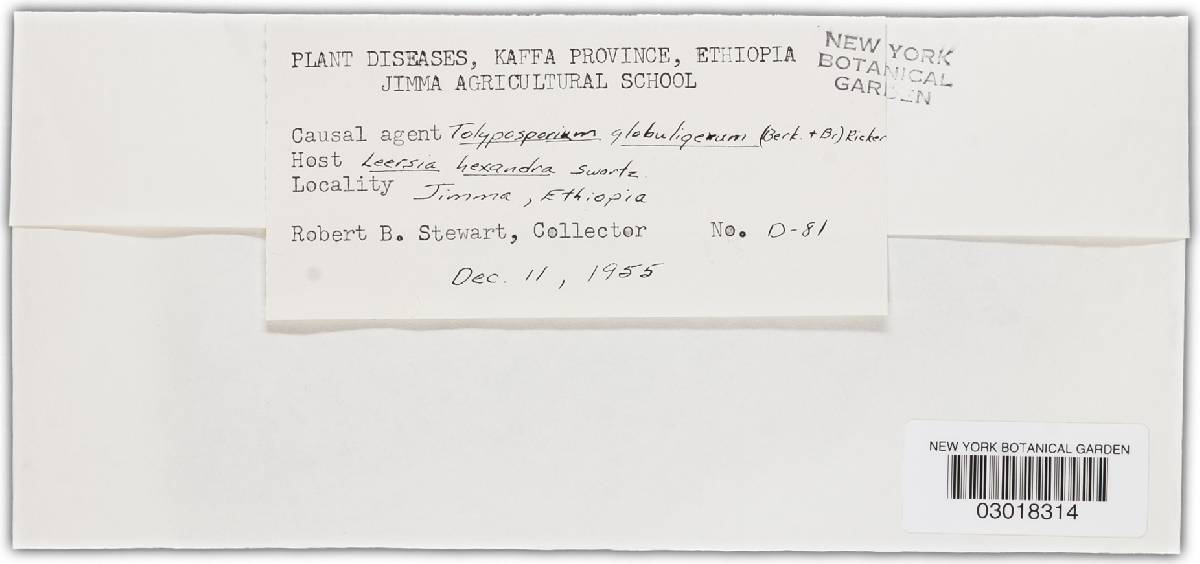 PLANT DISEASES, KAFFA PROVINCE, ETHIOPIA
JIMMA AGRICULTURAL SCHOOL
NEW YORK
BOTANICAL
GARDEN
Causal agent Tolyposporium globuligerum (Berk. + Br) Ricker
Host Leersia hexandra Swortz.
Locality Jimma, Ethiopia
Robert B. Stewart, Collector No. D-81
Dec. 11, 1955
NEW YORK BOTANICAL GARDEN
03018314